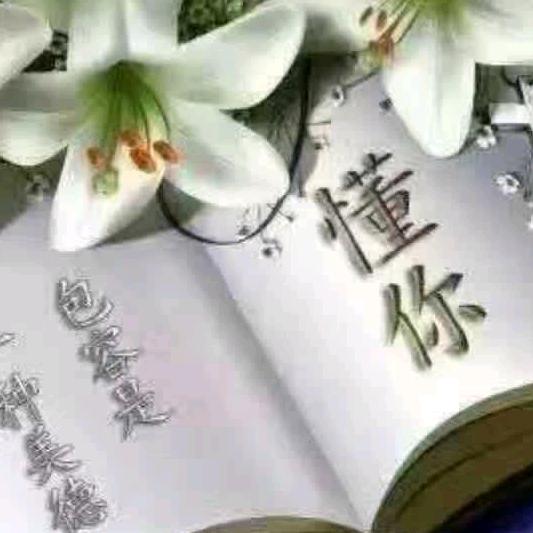 懂你
包容是
一种美德